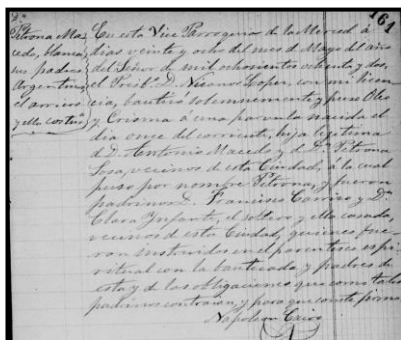 161
Petrona Ma-
cedo, blanca,
sus padres
Argentinos,
el arriero
y ella costura
En esta Vice Parroquia de la Merced á
dias veinte y ocho del mes de Mayo del año
del Señor de mil ochocientos ochenta y dos,
el Presb.º D. Nicanor Lopez, con mi licen-
cia, bautizó solemnemente y puso Oleo
y Crisma á una parvula nacida el
dia once del corriente, hija legitima
de D. Antonio Macedo y de D.ª Petrona
Sosa, vecinos de esta Ciudad, á la cual
puso por nombre Petrona, y fueron
padrinos D. Francisco y D.ª
Clara Infante, el soltero y ella casada,
vecinos de esta Ciudad, quienes fue-
ron instruidos en el parentesco espi-
ritual con la bautizada y padres de
esta y de las obligaciones que como tales
padrinos contraian, y para que conste firmo
Napoleon